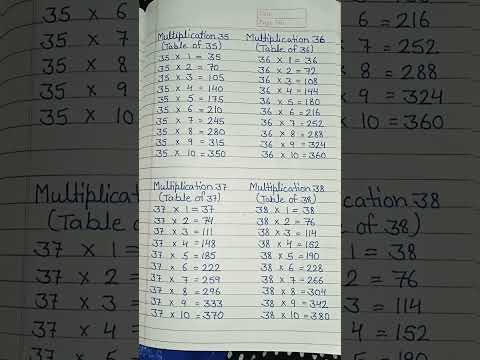 35 × 6
35 × 7
35 × 8
35 × 9
35 × 10
37 × 1
37 × 2
37 × 3
37 × 4
Page No.
Multiplication 35
(Table of 35)
35 × 1 = 35
35 × 2 = 70
35 × 3 = 105
35 × 4 = 140
35 × 5 = 175
35 × 6 = 210
35 × 7 = 245
35 × 8 = 280
35 × 9 = 315
35 × 10 = 350
Multiplication 36
(Table of 36)
36 × 1 = 36
36 × 2 = 72
36 × 3 = 108
36 × 4 = 144
36 × 5 = 180
36 × 6 = 216
36 × 7 = 252
36 × 8 = 288
36 × 9 = 324
36 × 10 = 360
Multiplication 37
(Table of 37)
37 × 1 = 37
37 × 2 = 74
37 × 3 = 111
37 × 4 = 148
37 × 5 = 185
37 × 6 = 222
37 × 7 = 259
37 × 8 = 296
37 × 9 = 333
37 × 10 = 370
Multiplication 38
(Table of 38)
38 × 1 = 38
38 × 2 = 76
38 × 3 = 114
38 × 4 = 152
38 × 5 = 190
38 × 6 = 228
38 × 7 = 266
38 × 8 = 304
38 × 9 = 342
38 × 10 = 380
6 = 216
7 = 252
8 = 288
9 = 324
10 = 360
cation 38
of 38)
1 = 38
2 = 76
3 = 114
4 = 152